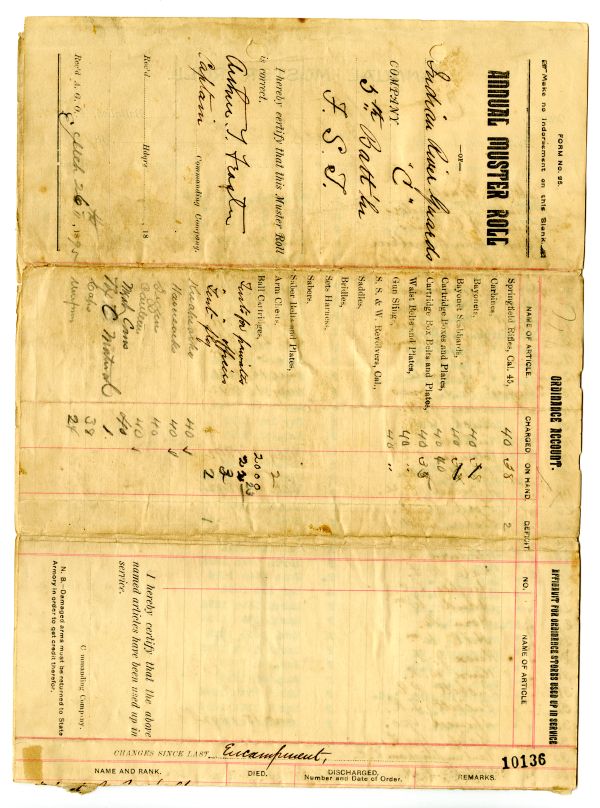 FORM NO. 26.
☞ Make no Indorsement on this Blank.
ANNUAL MUSTER ROLL
—OF—
Indian River Guards
"C"
COMPANY
5th Batt'ln
F. S. T.
I hereby certify that this Muster Roll
is correct.
Captain
Commanding Company.
Rec'd Hdqrs 18
Rec'd A. G. O., Mch 26th, 1895
ORDINANCE ACCOUNT.
NAME OF ARTICLE. CHARGED. ON HAND. DEFICIT.
Springfield Rifles, Cal. 45, 40 38 2
Carbines,
Bayonets, 40
Bayonet Scabbards, 40
Cartridge Boxes and Plates, 40 40
Cartridge Box Belts and Plates, 40 38
Waist Belts and Plates, 40 "
Gun Slings, 40 "
S. & W. Revolvers, Cal.,
Saddles,
Bridles,
Sets Harness,
Sabers,
Saber Belts and Plates,
Arm Chests, 2
Ball Cartridges, 2000
Tents for privates
" " officers
Tent fly 2 1
40
Haversacks 40
40
Canteens 40
Mess Cans 40
1
Caps 38
Uniform
AFFIDAVIT FOR ORDINANCE STORES USED UP IN SERVICE
NO. NAME OF ARTICLE
I hereby certify that the above
named articles have been used up in
service.
Commanding Company.
N. B.—Damaged arms must be returned to State
Armory in order to get credit therefor.
CHANGES SINCE LAST Encampment,
10136
NAME AND RANK. DIED. DISCHARGED. Number and Date of Order. REMARKS.